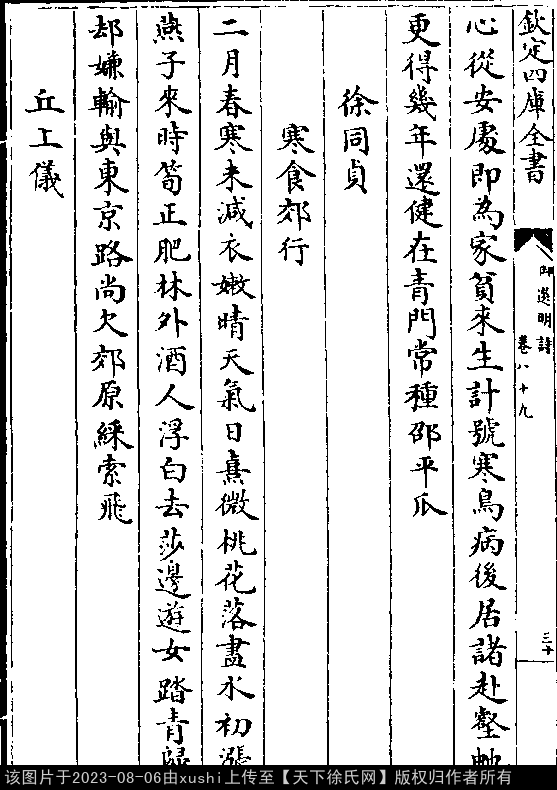 欽定四庫全書
御選明詩
卷八十九
三十
心從安處即為家貧來生計號寒鳥病後居諸赴壑
更得幾年還健在青門常種邵平瓜
徐同貞
寒食郊行
二月春寒未減衣嫩晴天氣日熹微桃花落盡水初漲
燕子來時筍正肥林外酒人浮白去莎邊遊女踏青歸
却嫌輸與東京路尚欠郊原綵索飛
丘工儀
该图片于2023-08-06由xushi上传至【天下徐氏网】版权归作者所有